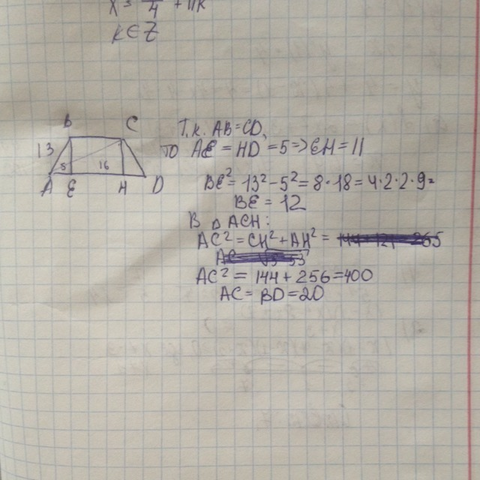 x = π/4 + πk
k ∈ Z
B C
13
5 16
A E H D
Т.к. AB = CD,
то AE = HD = 5 => EH = 11
BE² = 13² - 5² = 8 · 18 = 4 · 2 · 2 · 9 =
BE = 12
В △ ACH:
AC² = CH² + AH² =
AC² = 144 + 256 = 400
AC = BD = 20